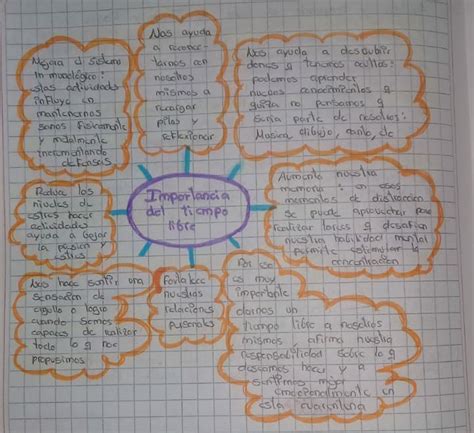 Importancia
del tiempo
libre
Mejora el sistema
Inmunológico:
estas actividades
influye en
mantenernos
sanos fisicamente
y mentalmente
incrementando
defensas
Nos ayuda
a reconec-
tarnos con
nosotros
mismos a
recargar
pilas y
reflexionar
Nos ayuda a descubrir
dones q tenemos ocultos:
podemos aprender
nuevos conocimientos q
quiza no pensamos q
seria parte de nosotros:
Musica, dibujo, canto, etc
Aumenta nuestra
memoria: en esos
momentos de distracción
se puede aprovechar para
realizar tareas q desafien
nuestra habilidad mental
permite estimular la
concentración
Reduce los
niveles de
estres hacer
actividades
ayuda a bajar
la presion y
estres
Nos hace sentir una
sensacion de
orgullo o logro
cuando somos
capaces de realizar
todo lo q nos
propusimos
Fortalece
nuestras
relaciones
personales
Por eso
es muy
importante
darnos un
tiempo libre a nosotros
mismos afirma nuestra
responsabilidad sobre lo q
deseamos hacer y a
sentirnos mejor
emocionalmente en
esta cuarentena